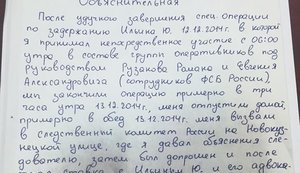 Объяснительная
После удачного завершения спец. операции
по задержанию Ильина Ю. 12.12.2014г. в которой
я принимал непосредственное участие с 06:00
утра в составе группы оперативников под
руководством Рузакова Романа и Евгения
Александровича (сотрудников ФСБ России),
мы закончили операцию примерно в три
часа утра 13.12.2014г., меня отпустили домой,
примерно в обед 13.12.2014г. меня вызвали
в следственный комитет России на Новокуз-
нецкой улице, где я давал объяснения сле-
дователю, затем был допрошен и после
ставка с Ильиным Ю. и его адвока-